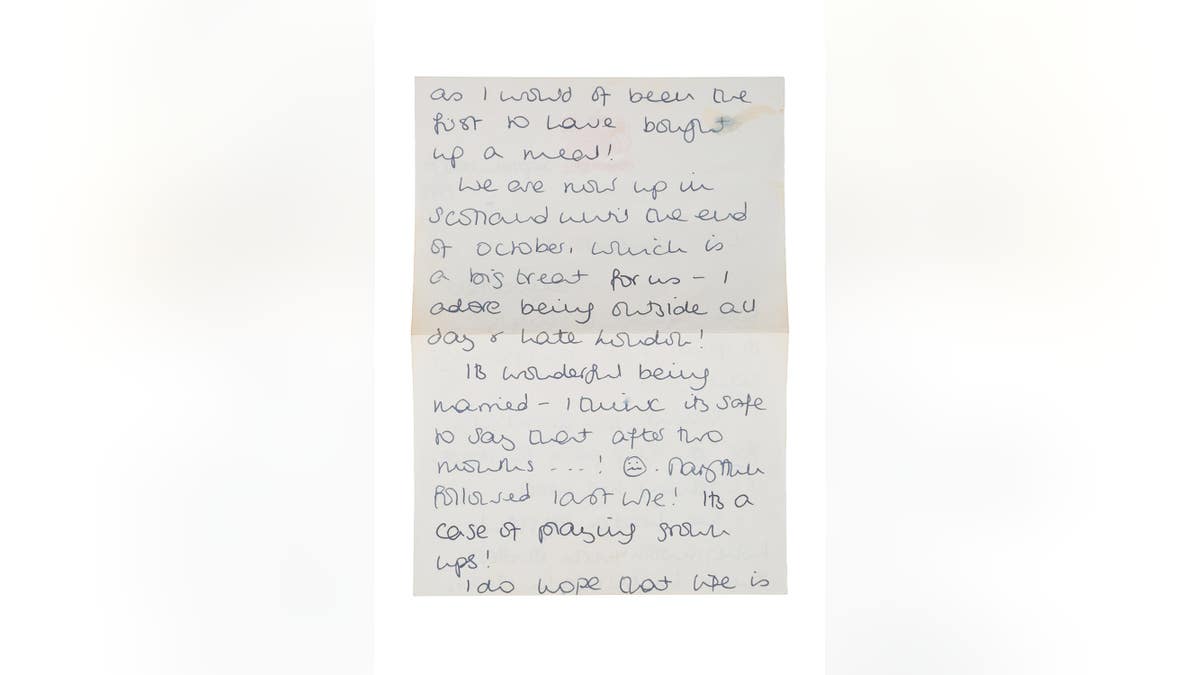 as I would of been the
first to have bought
up a meal!
We are now up in
Scotland until the end
of October, which is
a big treat for us - I
adore being outside all
day & hate London!
Its wonderful being
married - I think its safe
to say that after two
months ...! 
followed last w/e! Its a
case of playing grown
ups!
I do hope that life is